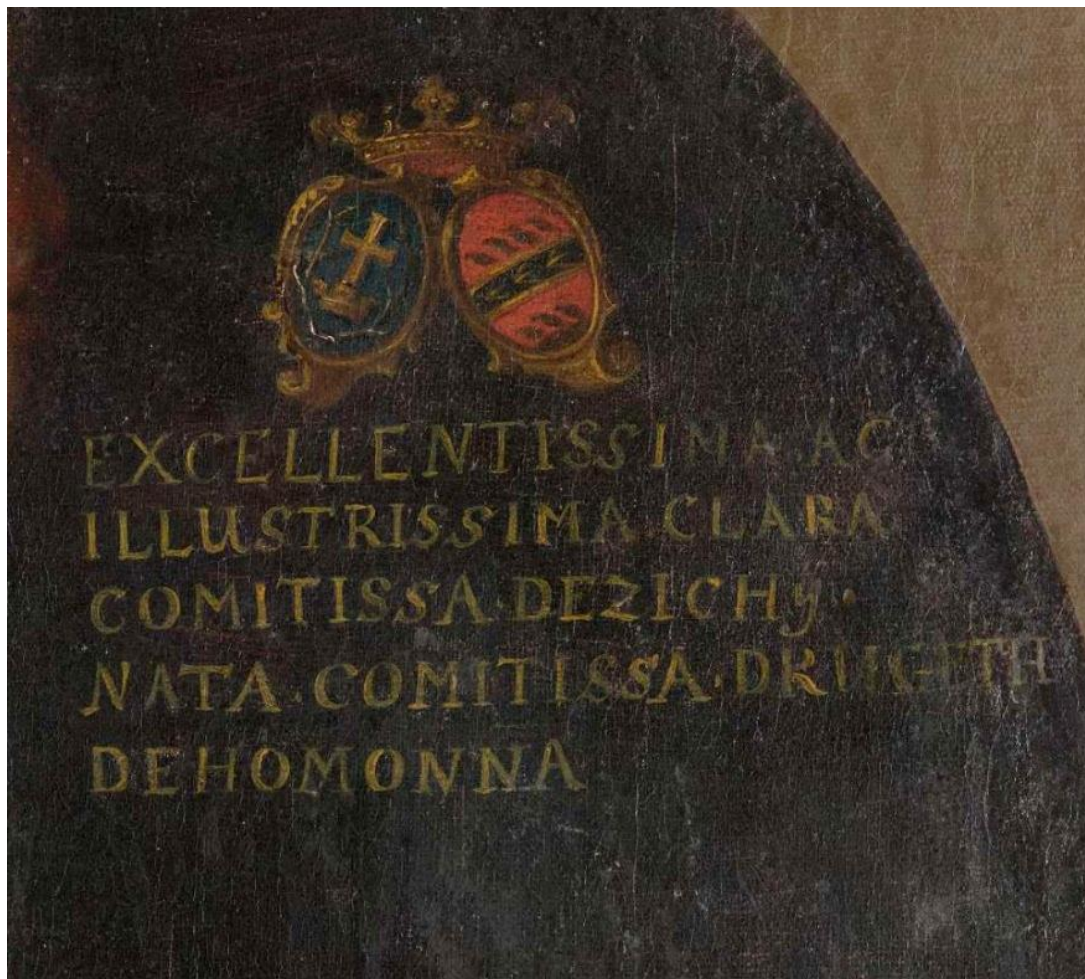 EXCELLENTISSIMA.AC
ILLUSTRISSIMA CLARA
COMITISSA.DEZICHy.
NATA.COMITISSA.DRUGETH
DEHOMONNA